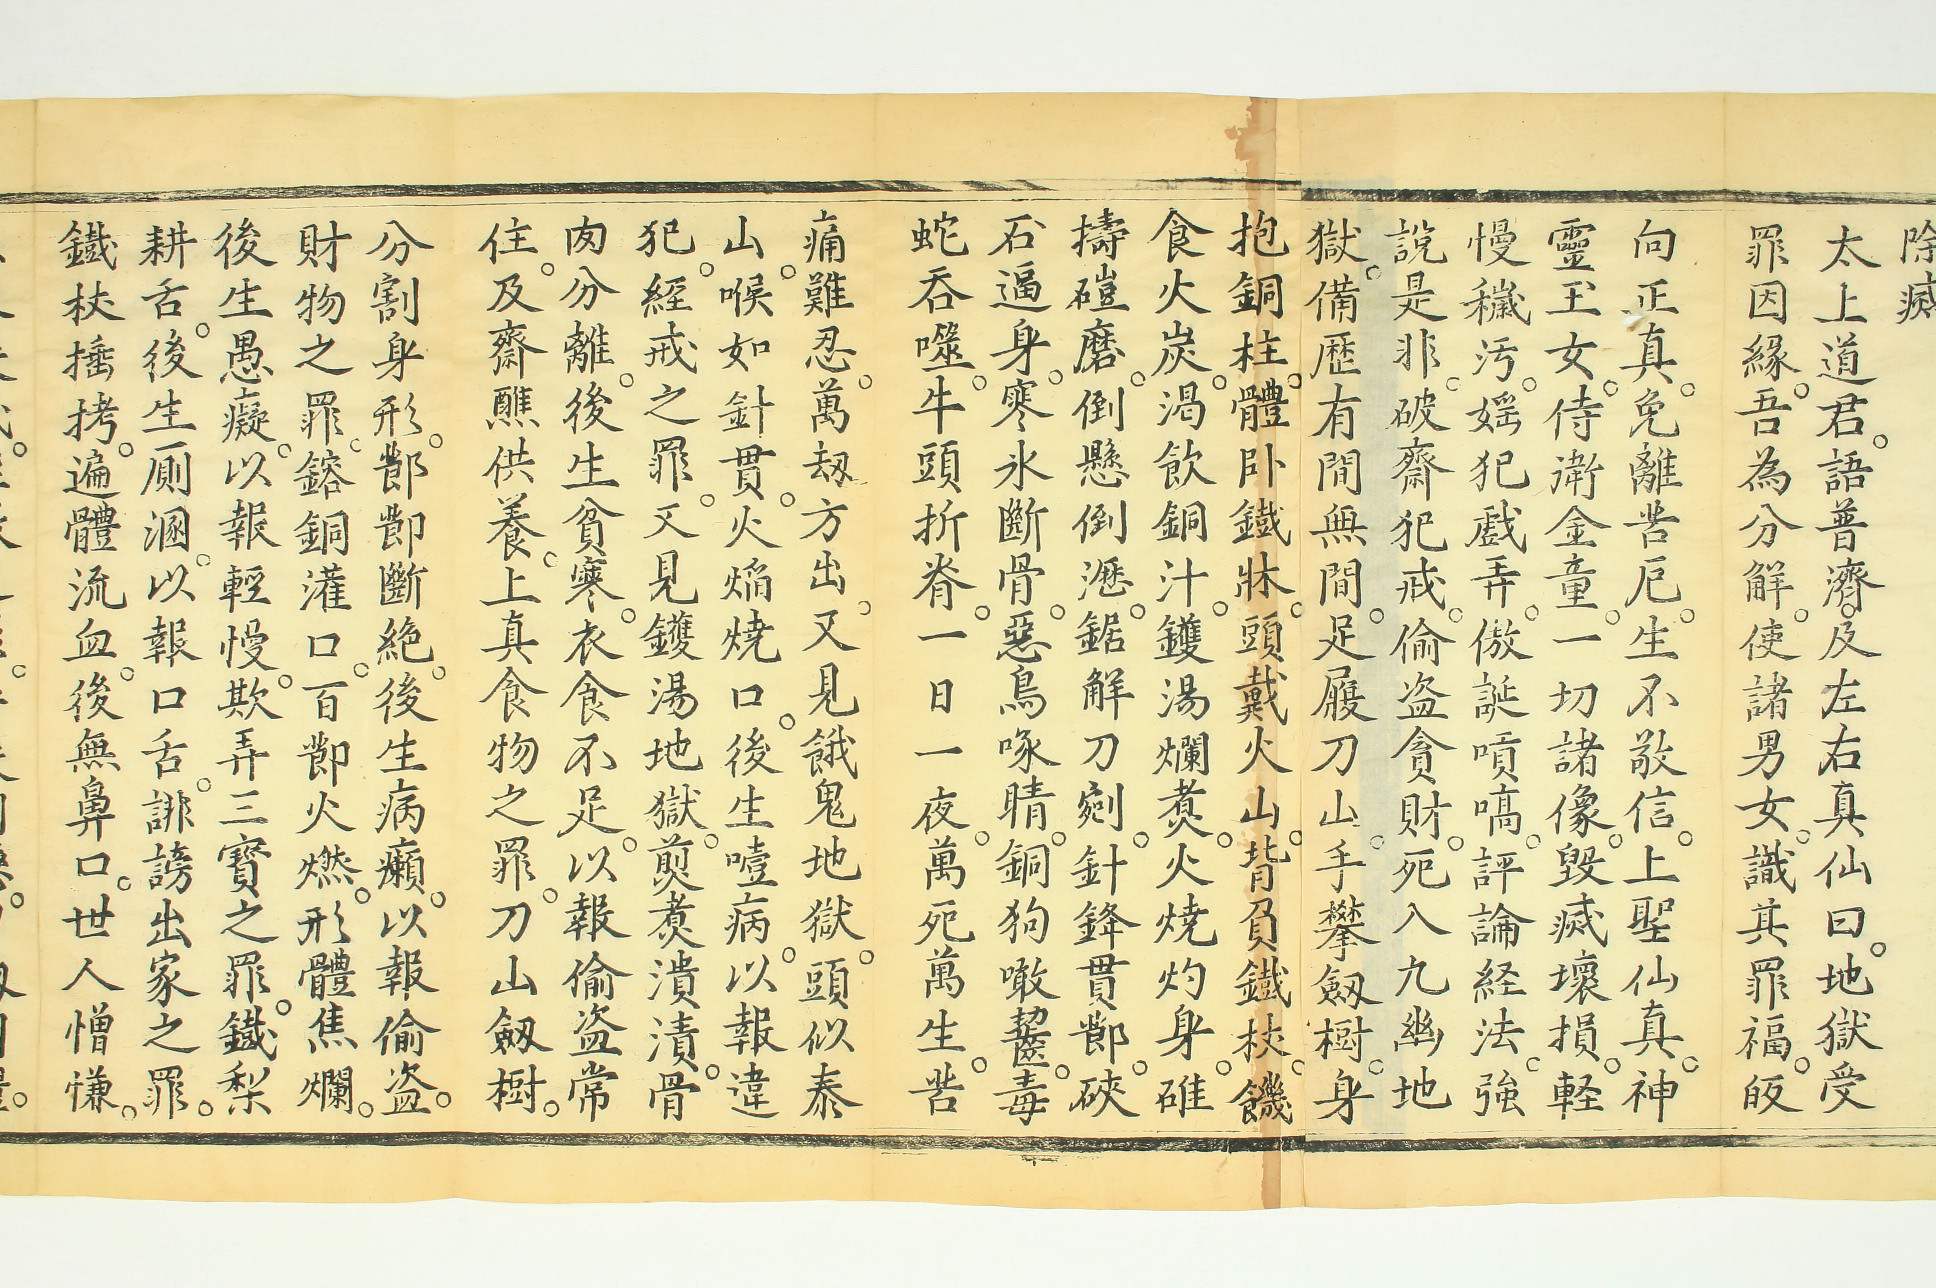 除滅
太上道君。語普濟。及左右真仙曰。地獄受
罪因緣。吾為分解。使諸男女。識其罪福。皈
向正真。免離苦厄。生不敬信。上聖仙真。神
靈玉女。侍衛金童。一切諸像。毀滅壞損。軽
慢穢汚。婬犯戲弄。傲誕嘖嗃。評論経法。強
說是非。破齋犯戒。偷盗貪財。死入九幽地
獄。備歷有間無間。足履刀山。手攀劔樹。身
抱銅柱。體卧鐵牀。頭戴火山。背負鐵杖。饑
食火炭。渴飲銅汁。鑊湯爛煑。火燒灼身。碓
擣磑磨。倒懸倒瀝。鋸解刀剜。針鋒貫節。硤
石逼身。寒氷斷骨。惡鳥啄睛。銅狗噉齧。毒
蛇吞噬。牛頭折脊。一日一夜。萬死萬生。苦
痛難忍。萬刼方出。又見餓鬼地獄。頭似泰
山。喉如針貫。火焰燒口。後生噎病。以報違
犯。經戒之罪。又見鑊湯地獄。煎煑潰漬。骨
肉分離。後生貧寒。衣食不足。以報偷盗常
住。及齋醮供養。上真食物之罪。刀山劔樹。
分割身形。節節斷絕。後生病癩。以報偷盗。
財物之罪。鎔銅灌口。百節火燃。形體焦爛。
後生愚癡。以報輕慢。欺弄三寶之罪。鐵犁
耕舌。後生厠溷。以報口舌。誹謗出家之罪。
鐵杖捶拷。遍體流血。後無鼻口。世人憎慊。